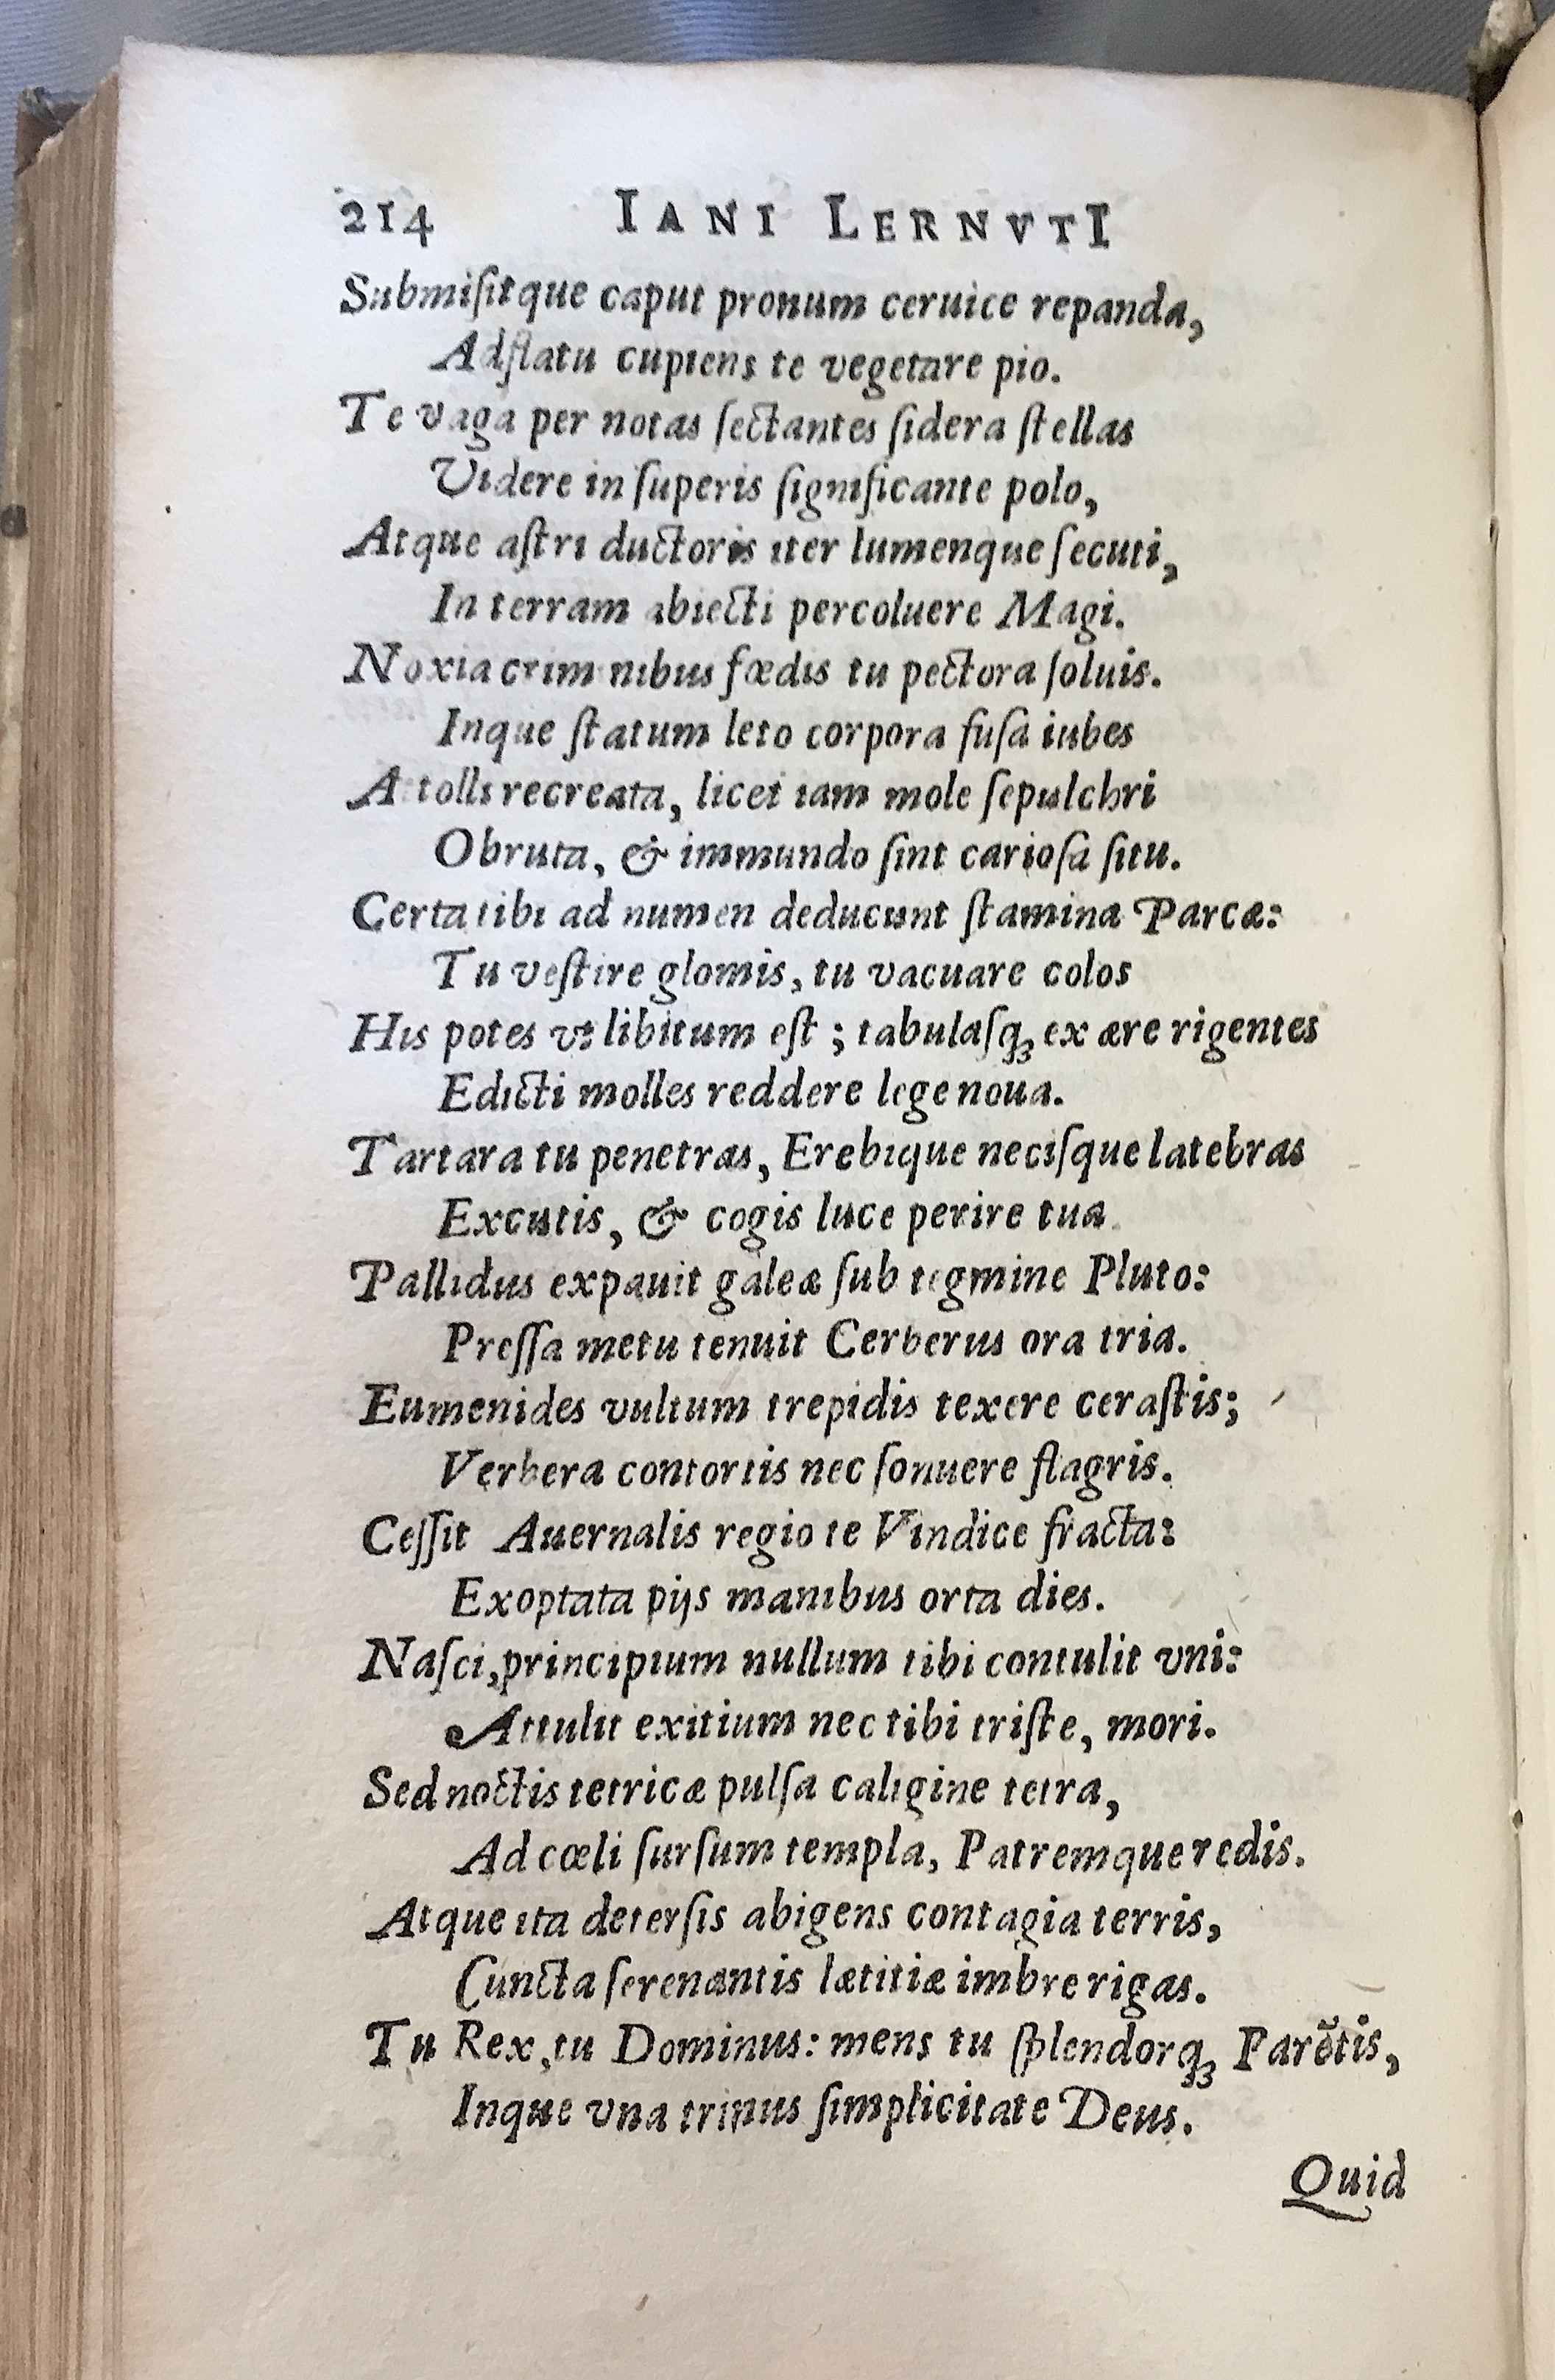 214 IANI LERNVTI
Submiſitque caput pronum ceruice repanda,
Adflatu cupiens te vegetare pio.
Te vaga per notas ſectantes ſidera ſtellas
Videre in ſuperis ſignificante polo,
Atque aſtri ductoris iter lumenque ſecuti,
In terram abiecti percoluere Magi.
Noxia criminibus fœdis tu pectora ſoluis.
Inque ſtatum leto corpora fuſa iubes
Attolli recreata, licet iam mole ſepulchri
Obruta, & immundo ſint carioſa ſitu.
Certa tibi ad numen deducunt ſtamina Parcæ:
Tu veſtire glomis, tu vacuare colos
His potes vt libitum eſt ; tabulaſq́ꝫ ex ære rigentes
Edicti molles reddere lege noua.
Tartara tu penetras, Erebique neciſque latebras
Excutis, & cogis luce perire tua.
Pallidus expauit galeæ ſub tegmine Pluto:
Preſſa metu tenuit Cerberus ora tria.
Eumenides vultum trepidis texere ceraſtis;
Verbera contortis nec ſonuere flagris.
Ceſſit Auernalis regio te Vindice fracta:
Exoptata pijs manibus orta dies.
Naſci, principium nullum tibi contulit vni:
Attulit exitium nec tibi triſte, mori.
Sed noctis tetricæ pulſa caligine tetra,
Ad cœli ſurſum templa, Patremque redis.
Atque ita deterſis abigens contagia terris,
Cuncta ſerenantis lætitiæ imbre rigas.
Tu Rex, tu Dominus: mens tu ſplendorqꝫ Parẽtis,
Inque vna trinus ſimplicitate Deus.
Quid